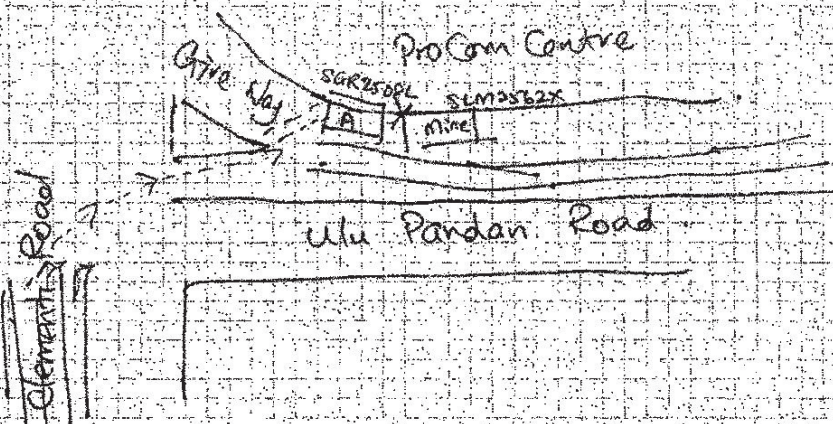 ProCom Centre
Give Way
SGR2500L
SLM2562X
A
Mine
Ulu Pandan Road
Clementi Road